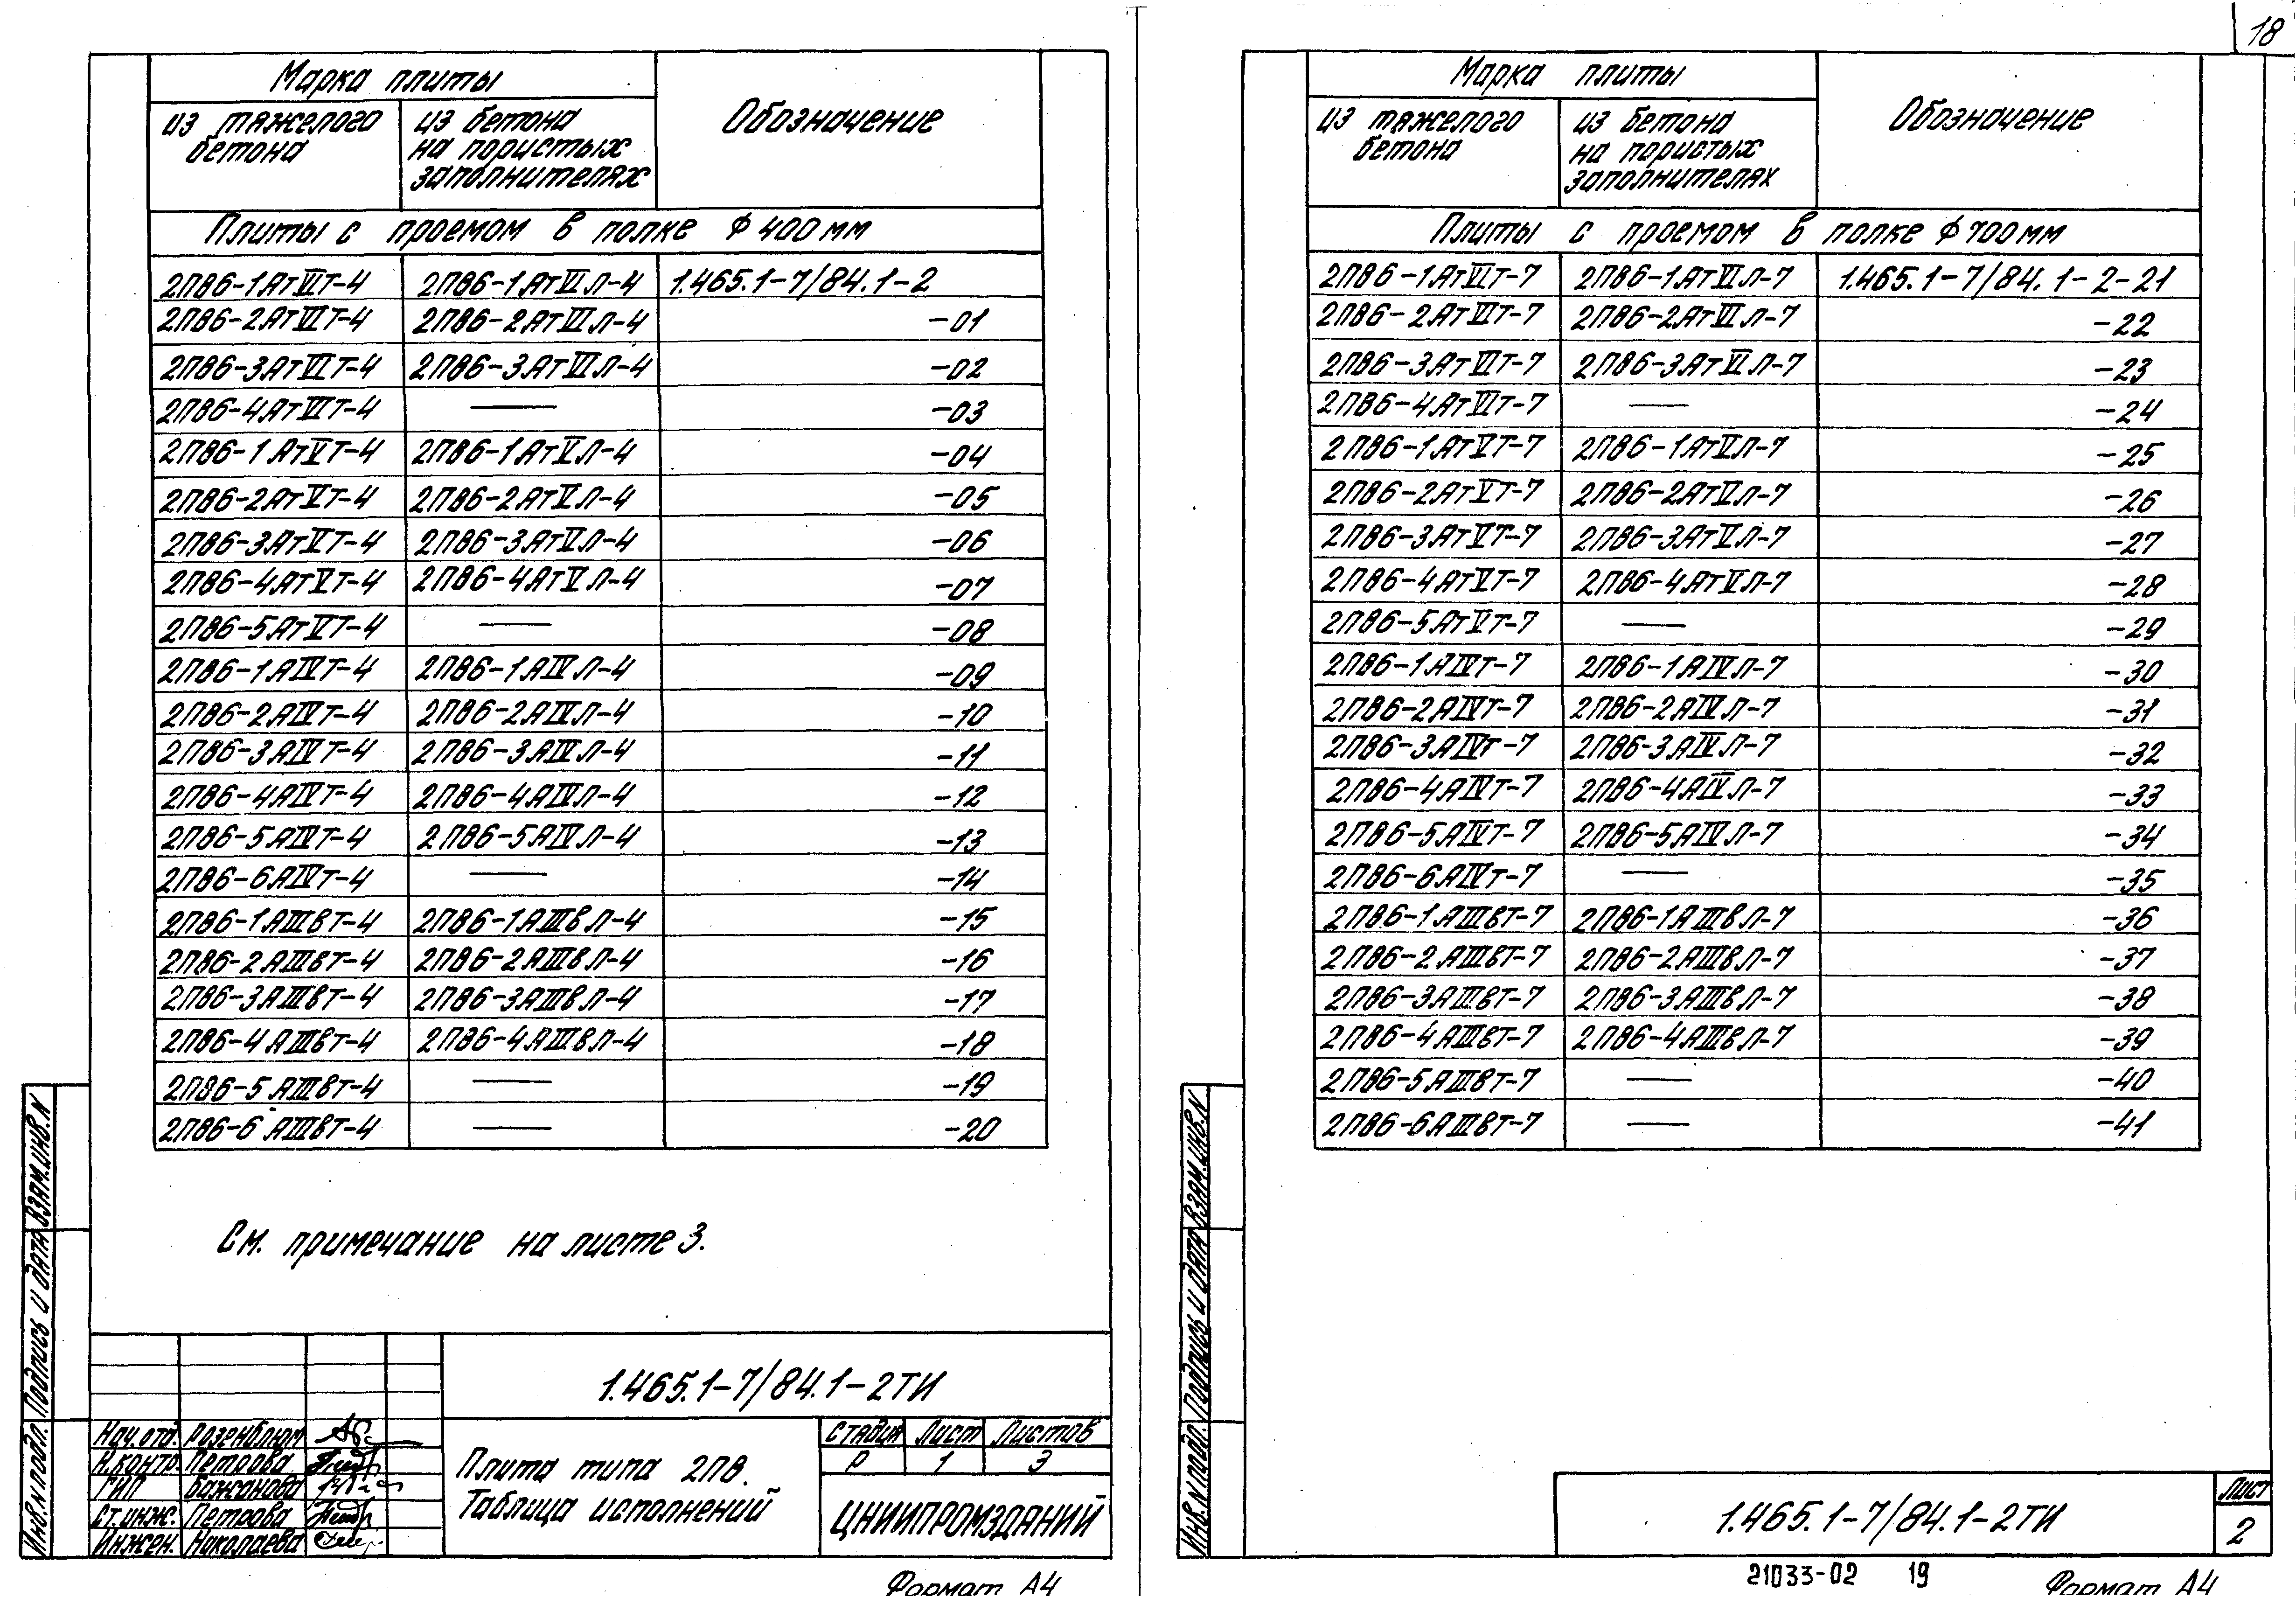 18
Марка плиты
Обозначение
из тяжелого бетона
из бетона на пористых заполнителях
Плиты с проемом в полке ф 400 мм
2ПВ6-1АтVIТ-4 2ПВ6-1АтVIЛ-4 1.465.1-7/84.1-2
2ПВ6-2АтVIТ-4 2ПВ6-2АтVIЛ-4 -01
2ПВ6-3АтVIТ-4 2ПВ6-3АтVIЛ-4 -02
2ПВ6-4АтVIТ-4 — -03
2ПВ6-1АтVТ-4 2ПВ6-1АтVЛ-4 -04
2ПВ6-2АтVТ-4 2ПВ6-2АтVЛ-4 -05
2ПВ6-3АтVТ-4 2ПВ6-3АтVЛ-4 -06
2ПВ6-4АтVТ-4 2ПВ6-4АтVЛ-4 -07
2ПВ6-5АтVТ-4 — -08
2ПВ6-1АIVТ-4 2ПВ6-1АIVЛ-4 -09
2ПВ6-2АIVТ-4 2ПВ6-2АIVЛ-4 -10
2ПВ6-3АIVТ-4 2ПВ6-3АIVЛ-4 -11
2ПВ6-4АIVТ-4 2ПВ6-4АIVЛ-4 -12
2ПВ6-5АIVТ-4 2ПВ6-5АIVЛ-4 -13
2ПВ6-6АIVТ-4 — -14
2ПВ6-1АIIIвТ-4 2ПВ6-1АIIIвЛ-4 -15
2ПВ6-2АIIIвТ-4 2ПВ6-2АIIIвЛ-4 -16
2ПВ6-3АIIIвТ-4 2ПВ6-3АIIIвЛ-4 -17
2ПВ6-4АIIIвТ-4 2ПВ6-4АIIIвЛ-4 -18
2ПВ6-5АIIIвТ-4 — -19
2ПВ6-6АIIIвТ-4 — -20
См. примечание на листе 3.
Инв.N подл. Подпись и дата Взам.инв.N
1.465.1-7/84.1-2ТИ
Нач.отд. Розенблюм
Н.контр. Петрова
ГИП Бажанова
Ст.инж. Петрова
Инжен. Николаева
Плита типа 2ПВ.
Таблица исполнений
Стадия Лист Листов
Р 1 3
ЦНИИПРОМЗДАНИЙ
Формат А4
Марка плиты
Обозначение
из тяжелого бетона
из бетона на пористых заполнителях
Плиты с проемом в полке ф 700 мм
2ПВ6-1АтVIТ-7 2ПВ6-1АтVIЛ-7 1.465.1-7/84.1-2-21
2ПВ6-2АтVIТ-7 2ПВ6-2АтVIЛ-7 -22
2ПВ6-3АтVIТ-7 2ПВ6-3АтVIЛ-7 -23
2ПВ6-4АтVIТ-7 — -24
2ПВ6-1АтVТ-7 2ПВ6-1АтVЛ-7 -25
2ПВ6-2АтVТ-7 2ПВ6-2АтVЛ-7 -26
2ПВ6-3АтVТ-7 2ПВ6-3АтVЛ-7 -27
2ПВ6-4АтVТ-7 2ПВ6-4АтVЛ-7 -28
2ПВ6-5АтVТ-7 — -29
2ПВ6-1АIVТ-7 2ПВ6-1АIVЛ-7 -30
2ПВ6-2АIVТ-7 2ПВ6-2АIVЛ-7 -31
2ПВ6-3АIVТ-7 2ПВ6-3АIVЛ-7 -32
2ПВ6-4АIVТ-7 2ПВ6-4АIVЛ-7 -33
2ПВ6-5АIVТ-7 2ПВ6-5АIVЛ-7 -34
2ПВ6-6АIVТ-7 — -35
2ПВ6-1АIIIвТ-7 2ПВ6-1АIIIвЛ-7 -36
2ПВ6-2АIIIвТ-7 2ПВ6-2АIIIвЛ-7 -37
2ПВ6-3АIIIвТ-7 2ПВ6-3АIIIвЛ-7 -38
2ПВ6-4АIIIвТ-7 2ПВ6-4АIIIвЛ-7 -39
2ПВ6-5АIIIвТ-7 — -40
2ПВ6-6АIIIвТ-7 — -41
Инв.N подл. Подпись и дата Взам.инв.N
1.465.1-7/84.1-2ТИ
Лист
2
21033-02 19
Формат А4